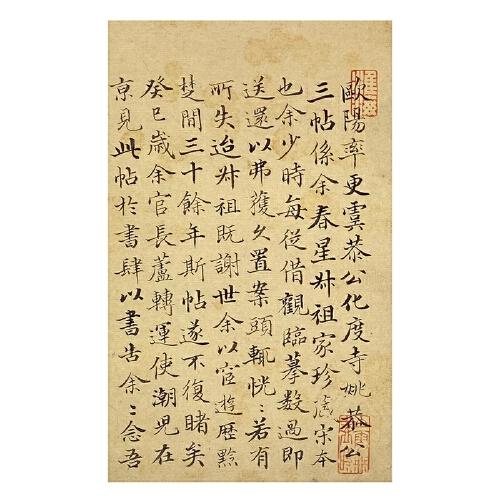 歐陽率更虞恭公化度寺姚恭公
三帖係余春星叔祖家珍藏宋本
也余少時每從借觀臨摹數過即
送還以弗獲久置案頭輒恍〻若有
所失迨叔祖既謝世余以宦遊歷黔
楚間三十餘年斯帖遂不復睹矣
癸巳歲余官長蘆轉運使潮兒在
京見此帖於書肆以書告余〻念吾